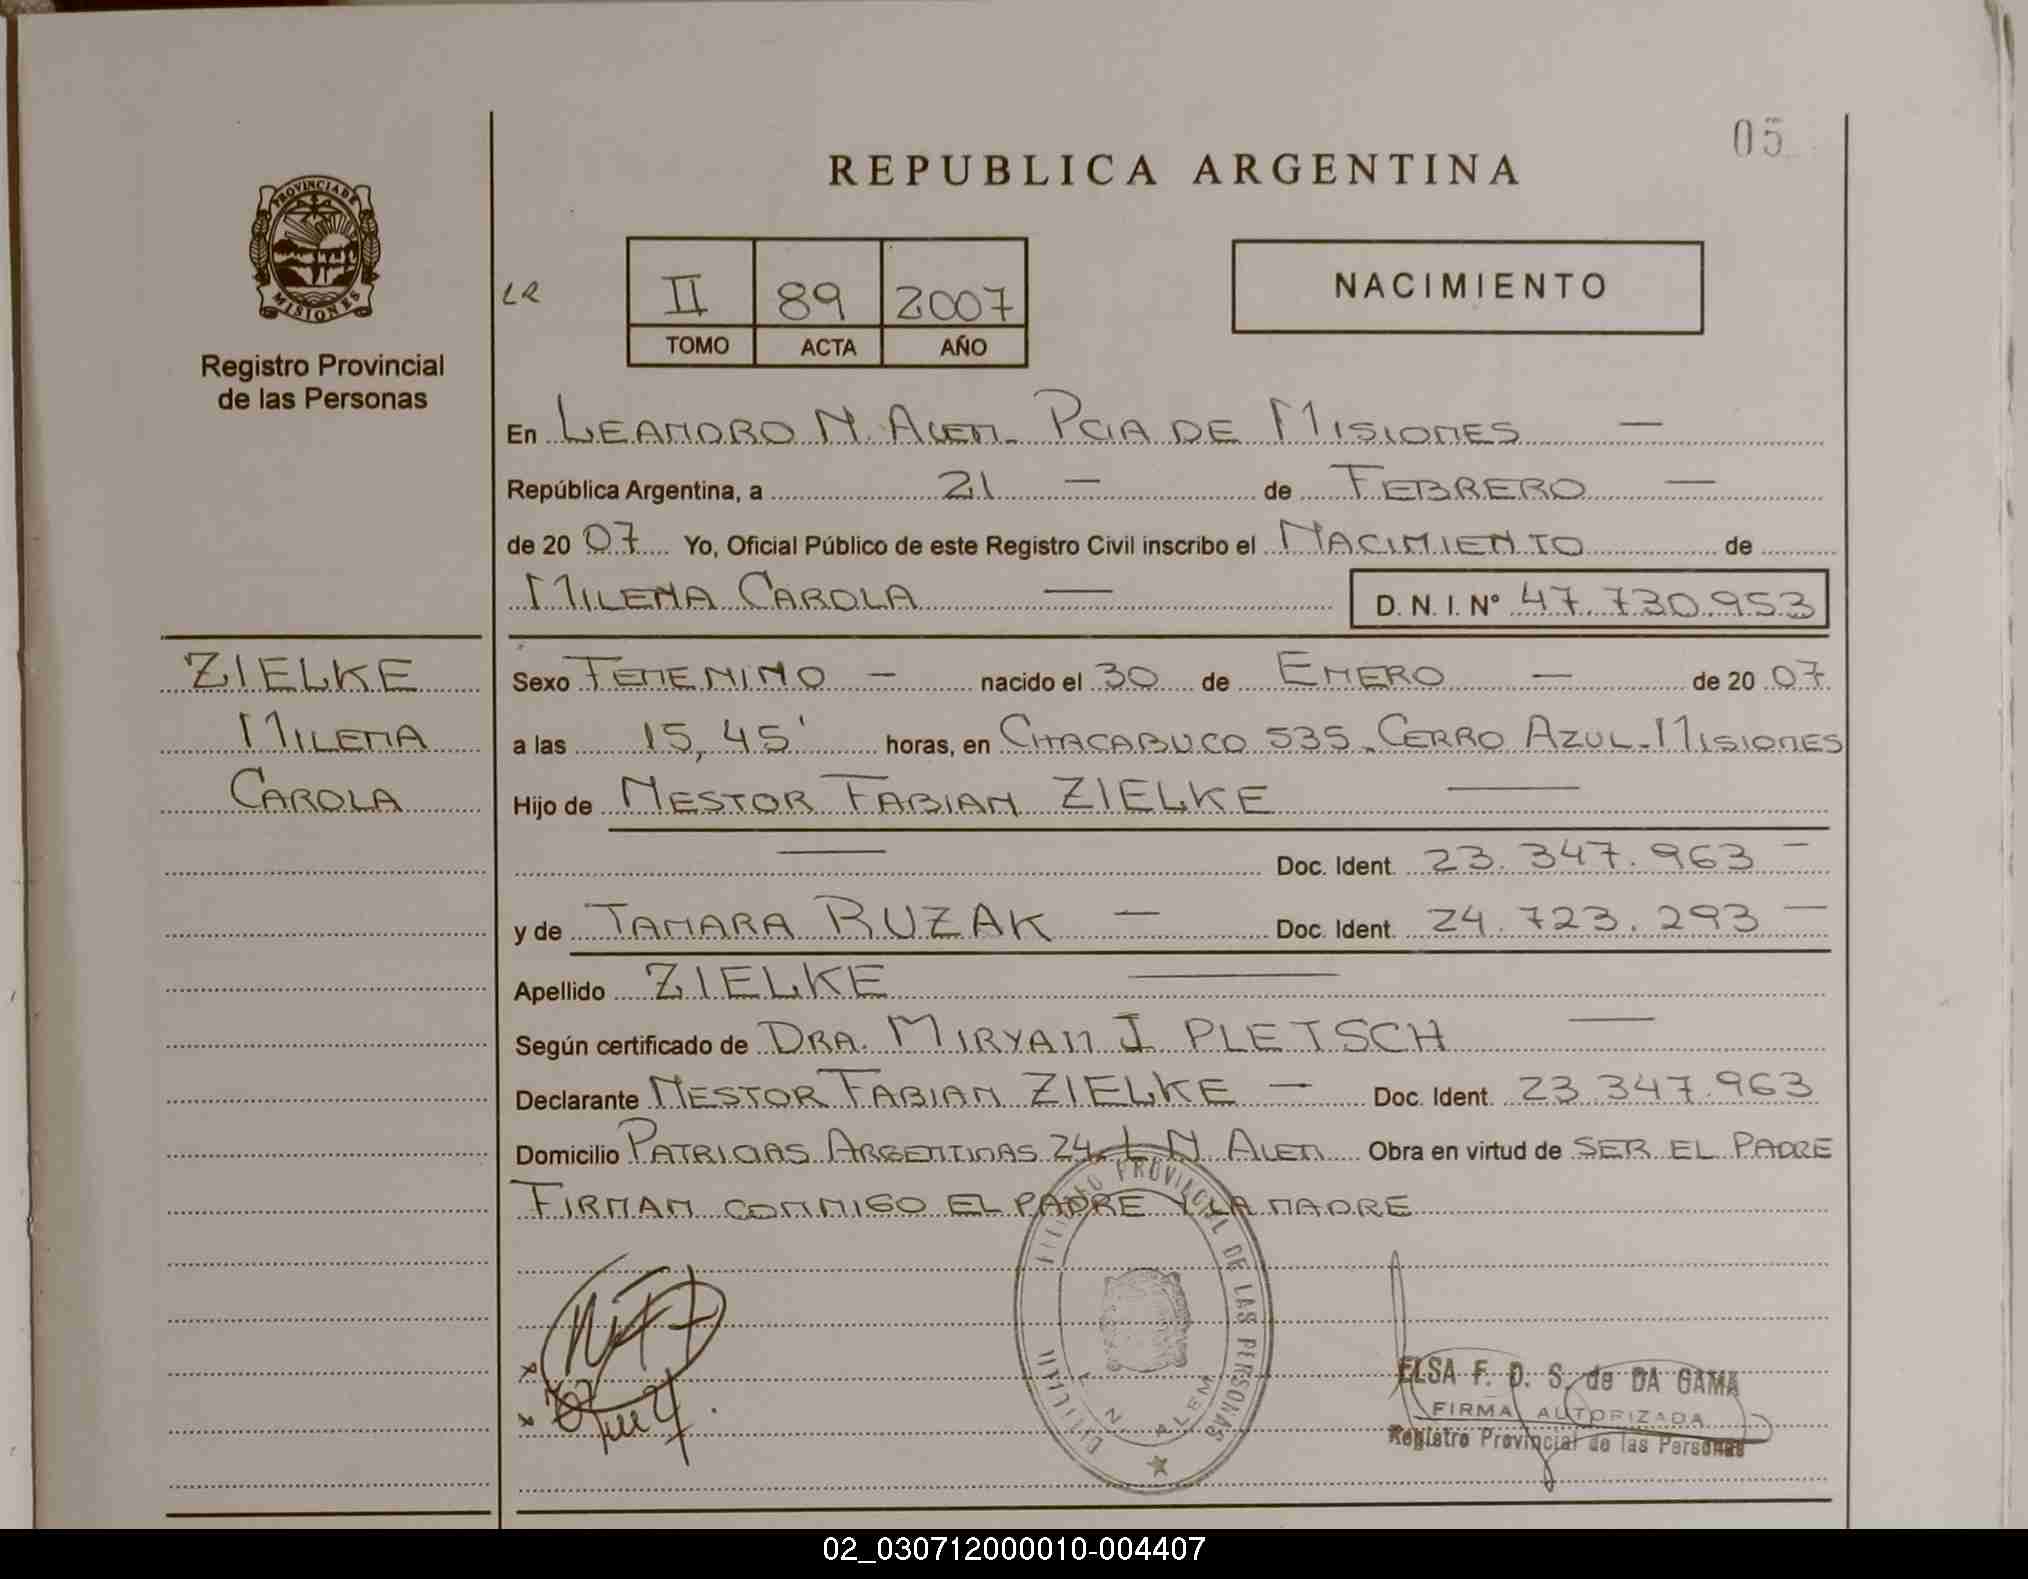 05
REPUBLICA ARGENTINA
PROVINCIA DE
MISIONES
Registro Provincial
de las Personas
LR
II 89 2007
TOMO ACTA AÑO
NACIMIENTO
En LEANDRO N. ALEM - PCIA DE MISIONES —
República Argentina, a 21 — de FEBRERO —
de 20 07 Yo, Oficial Público de este Registro Civil inscribo el NACIMIENTO de
MILENA CAROLA — D. N. I. Nº 47.730.953
ZIELKE
MILENA
CAROLA
Sexo FEMENINO — nacido el 30 de ENERO — de 20 07
a las 15,45' horas, en CHACABUCO 535 - CERRO AZUL - MISIONES
Hijo de NESTOR FABIAN ZIELKE —
— Doc. Ident. 23.347.963 —
y de TAMARA RUZAK — Doc. Ident. 24.723.293 —
Apellido ZIELKE —
Según certificado de DRA. MIRYAN J. PLETSCH —
Declarante NESTOR FABIAN ZIELKE — Doc. Ident. 23.347.963
Domicilio PATRICIAS ARGENTINAS 24 - L N ALEM Obra en virtud de SER EL PADRE
FIRMAN CONMIGO EL PADRE Y LA MADRE
PROVINCIAL DE LAS PERSONAS
L. N. ALEM
ELSA F. D. S. de DA GAMA
FIRMA AUTORIZADA
Registro Provincial de las Personas
02_030712000010-004407